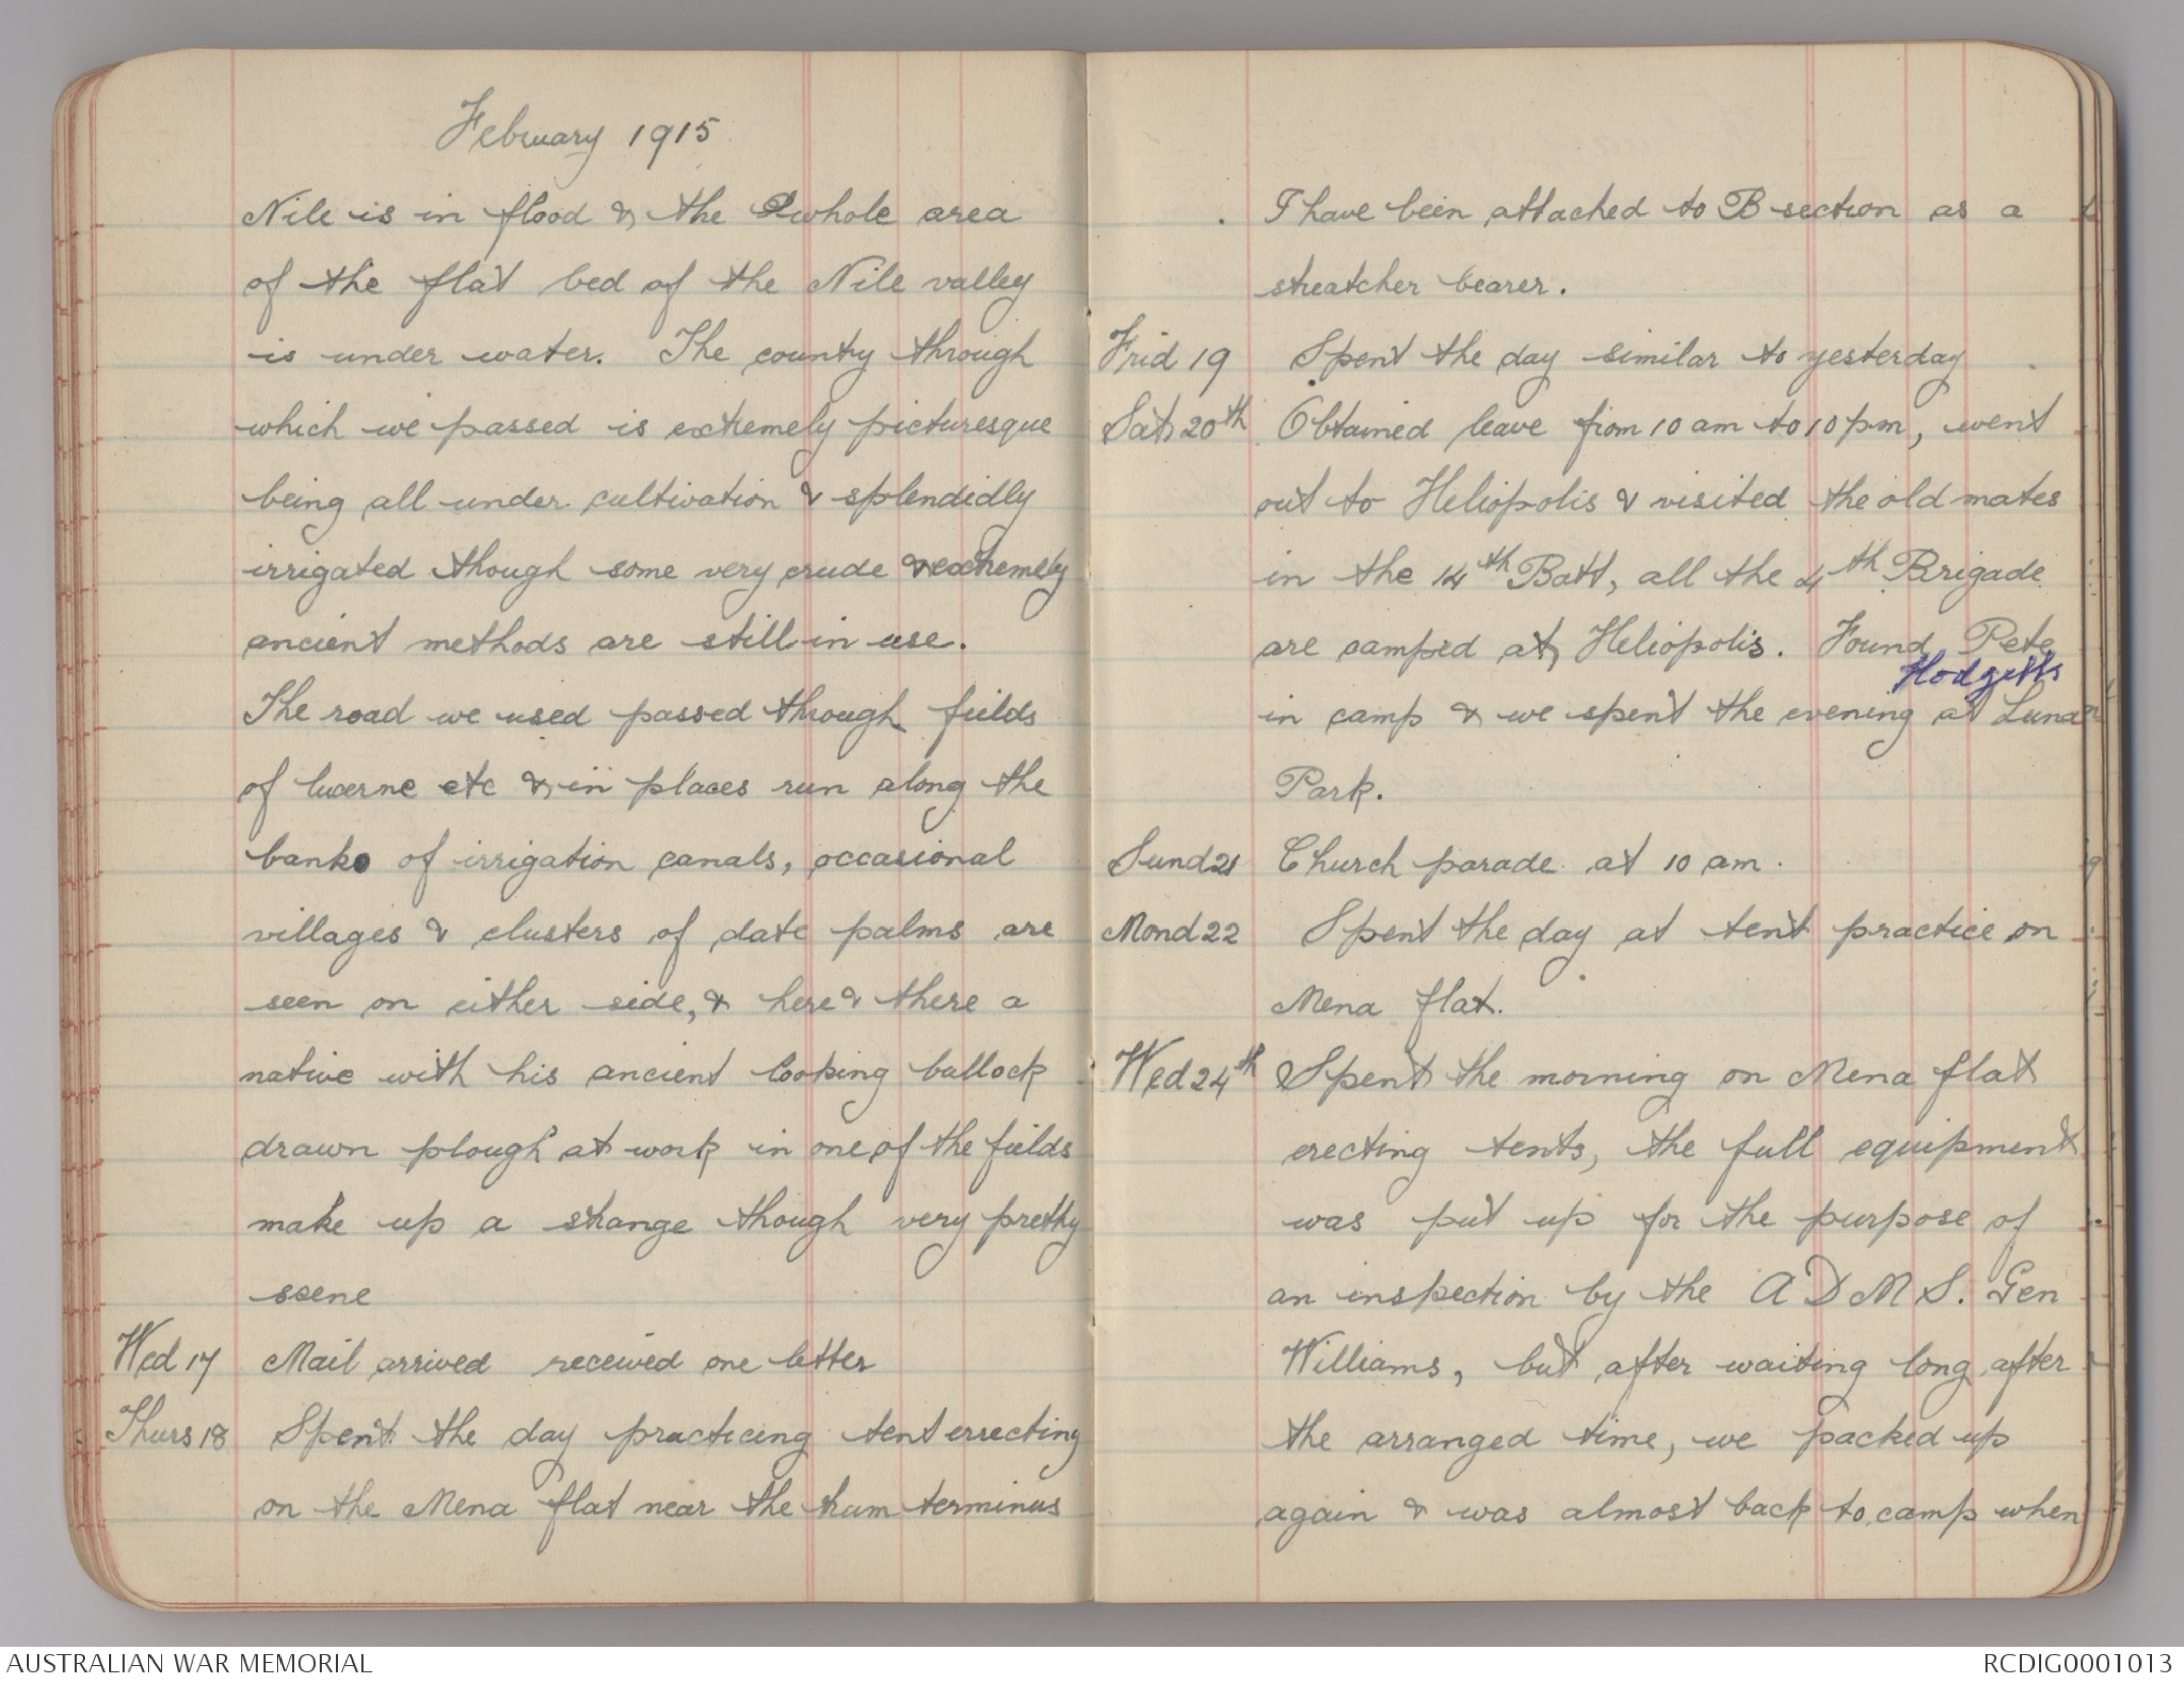 February 1915
Nile is in flood & the whole area
of the flat bed of the Nile valley
is under water. The county through
which we passed is extremely picturesque
being all under cultivation & splendidly
irrigated though some very crude & extremely
ancient methods are still in use.
The road we used passed through fields
of lucerne etc & in places run along the
banks of irrigation canals, occasional
villages & clusters of date palms are
seen on either side, & here & there a
native with his ancient looking bullock
drawn plough at work in one of the fields
make up a strange though very pretty
scene
Wed 17 Mail arrived received one letter
Thurs 18 Spent the day practicing tent errecting
on the Mena flat near the tram terminus
I have been attached to B section as a
streatcher bearer.
Frid 19 Spent the day similar to yesterday
Sat 20th Obtained leave from 10 am to 10 pm, went
out to Heliopolis & visited the old mates
in the 14th Batt, all the 4th Brigade
are camped at Heliopolis. Found Pete
Hodgetts
in camp & we spent the evening at Luna
Park.
Sund 21 Church parade at 10 am.
Mond 22 Spent the day at tent practice on
Mena flat.
Wed 24th Spent the morning on Mena flat
erecting tents, the full equipment
was put up for the purpose of
an inspection by the A D M S. Gen
Williams, but after waiting long after
the arranged time, we packed up
again & was almost back to camp when
AUSTRALIAN WAR MEMORIAL
RCDIG0001013